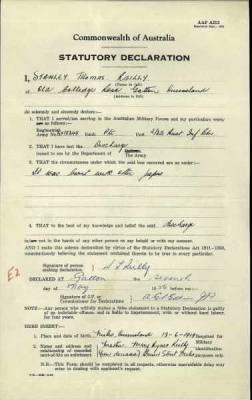 AAF A213
Commonwealth of Australia
STATUTORY DECLARATION
I, STANLEY Thomas REILLY
(Name in full)
of Old College Road Gatton Queensland
(Address in full)
do solemnly and sincerely declare:
1. THAT I served/am serving in the Australian Military Forces and my particulars were/are as follows:
Regimental
Army No. Rank Pte Unit Aust Inf Bn
2. THAT I have lost the Discharge
issued to me by the Department of The Army
3. THAT the circumstances under which the said was incurred are as under:
It was burnt with other papers
4. THAT to the best of my knowledge and belief the said Discharge
is not in the hands of any other person on my behalf or with my consent.
AND I make this solemn declaration by virtue of the Statutory Declarations Act 1911-1950,
conscientiously believing the statement contained therein to be true in every particular.
Signature of person
making declaration. S T Reilly
DECLARED AT Gatton second
May
Signature of J.P. or
Commissioner for Declarations
NOTE:—Any person who wilfully makes a false statement in a Statutory Declaration is guilty
of an indictable offence, and is liable to imprisonment, with or without hard labour for
four years.
HERE INSERT:
1. Place and date of birth Queensland 13-6-1919
2. Name and address and
relationship of recorded
next-of-kin on enlistment Mother Mary Agnes Reilly
(now deceased)
For Military
identification
NB. This Form should be completed in all respects, otherwise unavoidable delay may arise
in dealing with the applicant's request.
E2